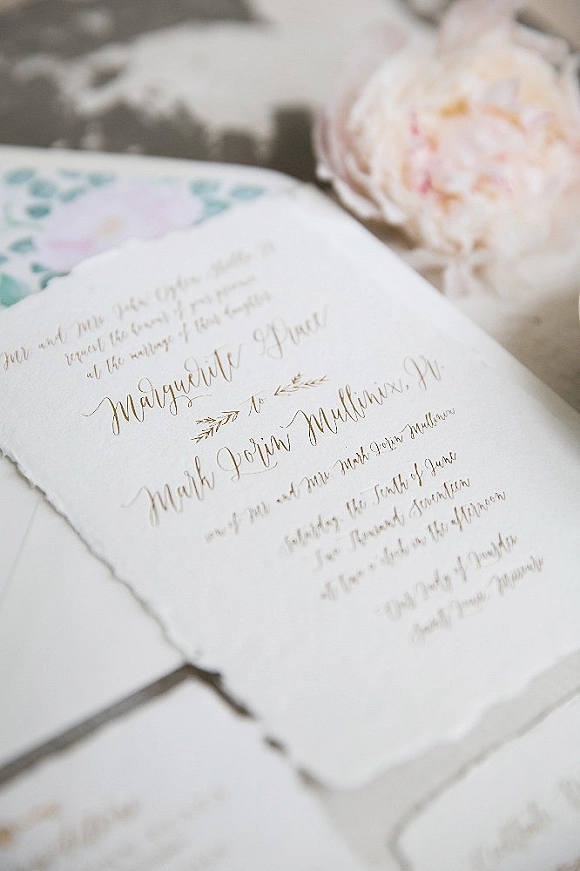 Mr and Mrs John Ogden
request the honour of your presence
at the marriage of their daughter
Marguerite Grace
to
Mark Dorin Mullinix, Jr.
son of Mr and Mrs Mark Dorin Mullinix
Saturday, the Tenth of June
Two Thousand Seventeen
at two o'clock in the afternoon
Our Lady of Lourdes
Saint Louis, Missouri